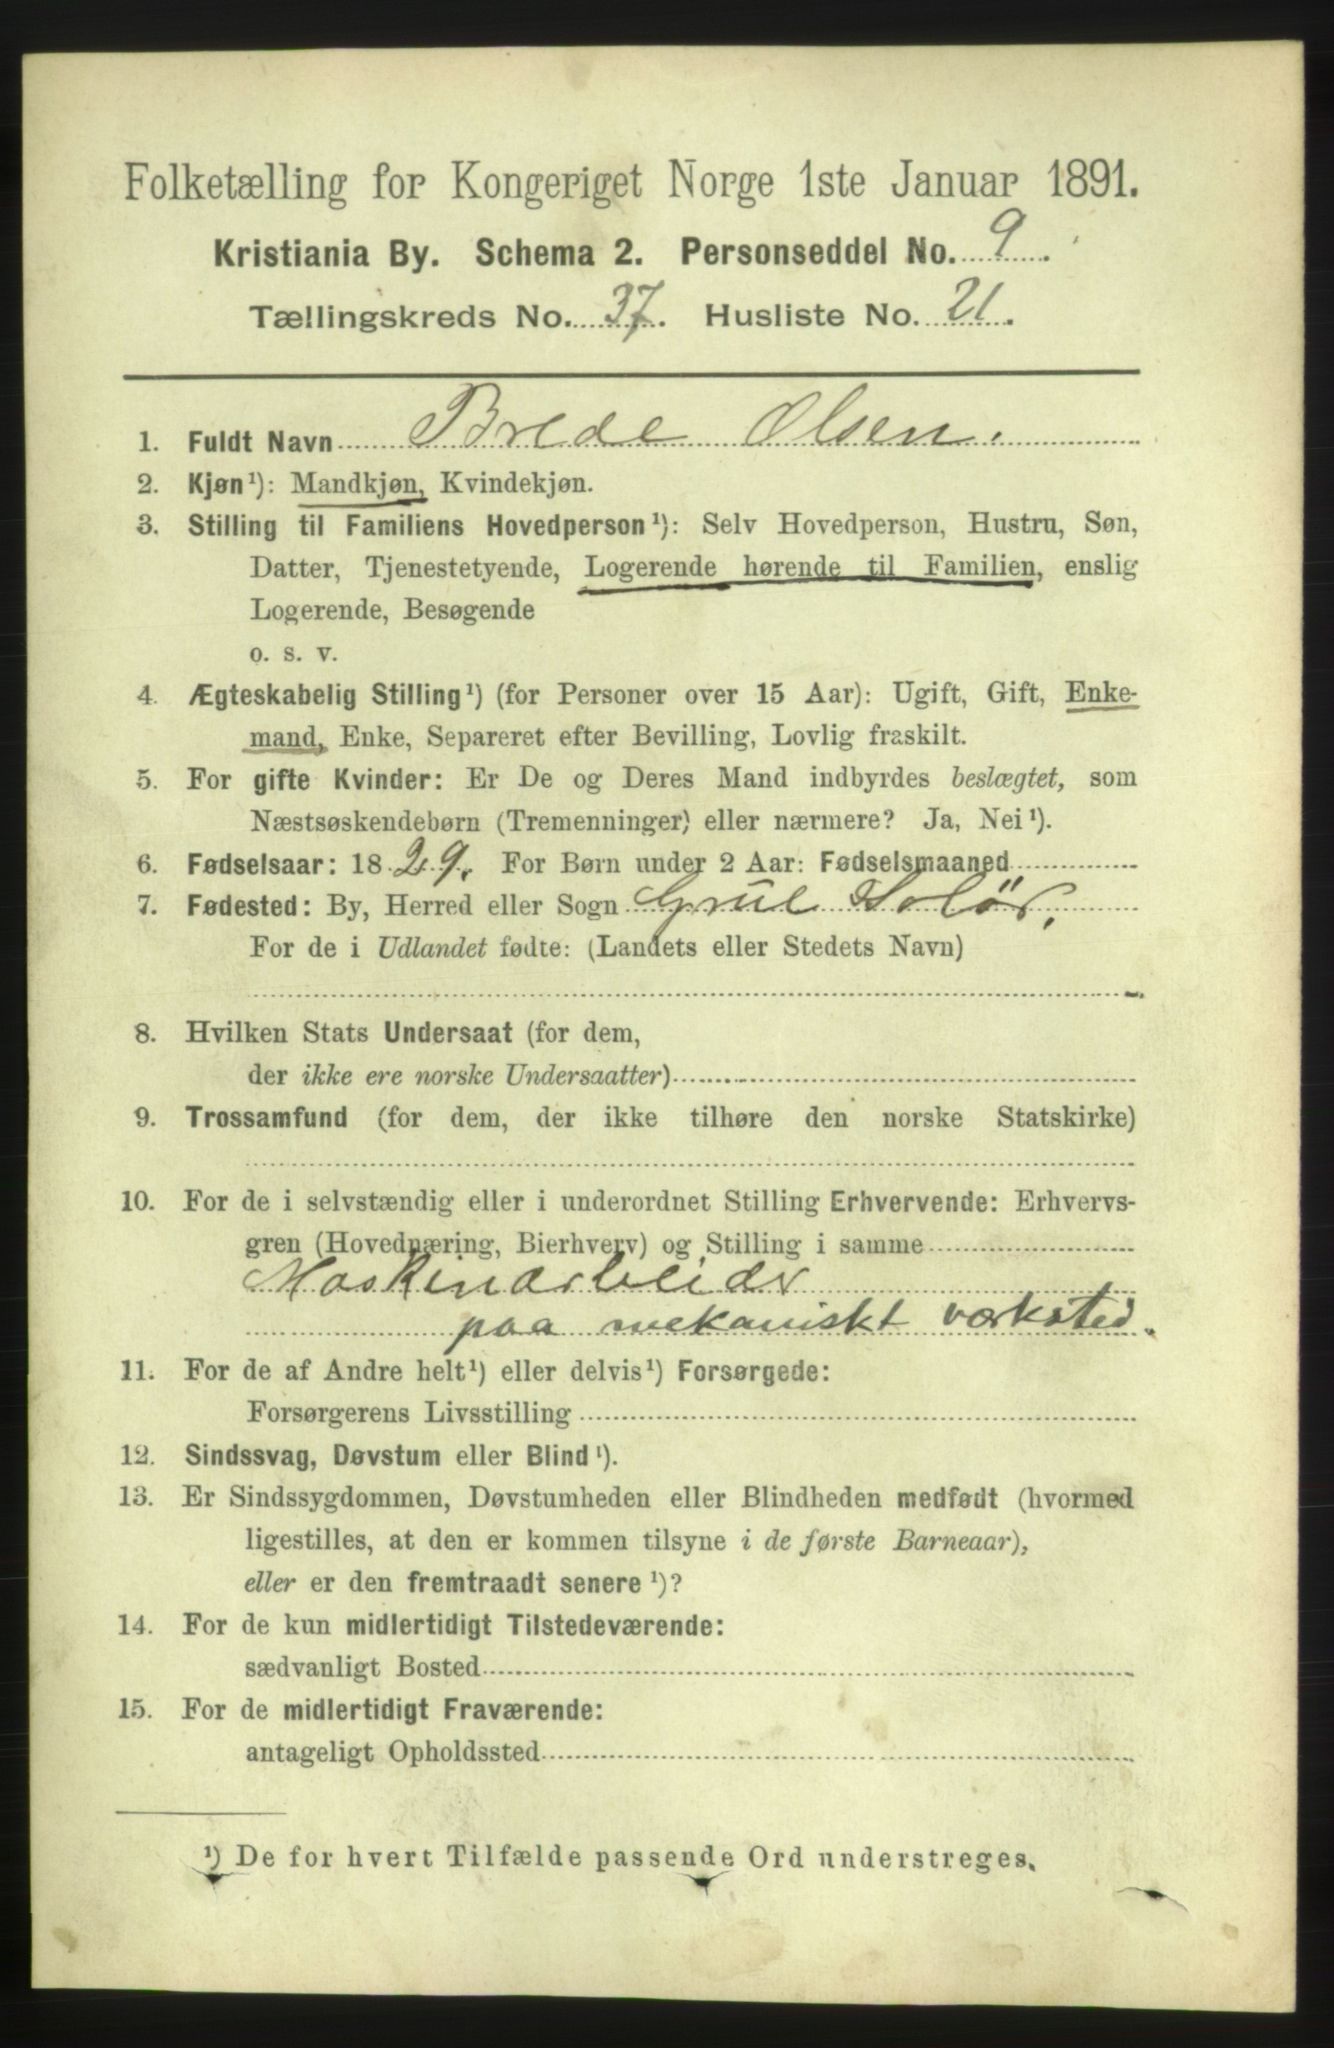 Folketælling for Kongeriget Norge 1ste Januar 1891.
Kristiania By. Schema 2. Personseddel No. 9.
Tællingskreds No. 37. Husliste No. 21.
1. Fuldt Navn Brede Olsen.
2. Kjøn¹): Mandkjøn, Kvindekjøn.
3. Stilling til Familiens Hovedperson¹): Selv Hovedperson, Hustru, Søn,
Datter, Tjenestetyende, Logerende hørende til Familien, enslig
Logerende, Besøgende
o. s. v.
4. Ægteskabelig Stilling¹) (for Personer over 15 Aar): Ugift, Gift, Enke-
mand, Enke, Separeret efter Bevilling, Lovlig fraskilt.
5. For gifte Kvinder: Er De og Deres Mand indbyrdes beslægtet, som
Næstsøskendebørn (Tremenninger) eller nærmere? Ja, Nei¹).
6. Fødselsaar: 1829. For Børn under 2 Aar: Fødselsmaaned
7. Fødested: By, Herred eller Sogn Grue Solör.
For de i Udlandet fødte: (Landets eller Stedets Navn)
8. Hvilken Stats Undersaat (for dem,
der ikke ere norske Undersaatter)
9. Trossamfund (for dem, der ikke tilhøre den norske Statskirke)
10. For de i selvstændig eller i underordnet Stilling Erhvervende: Erhvervs-
gren (Hovednæring, Bierhverv) og Stilling i samme
Maskinarbeider
paa mekaniskt værksted.
11. For de af Andre helt¹) eller delvis¹) Forsørgede:
Forsørgerens Livsstilling
12. Sindssvag, Døvstum eller Blind¹).
13. Er Sindssygdommen, Døvstumheden eller Blindheden medfødt (hvormed
ligestilles, at den er kommen tilsyne i de første Barneaar),
eller er den fremtraadt senere¹)?
14. For de kun midlertidigt Tilstedeværende:
sædvanligt Bosted
15. For de midlertidigt Fraværende:
antageligt Opholdssted
¹) De for hvert Tilfælde passende Ord understreges.